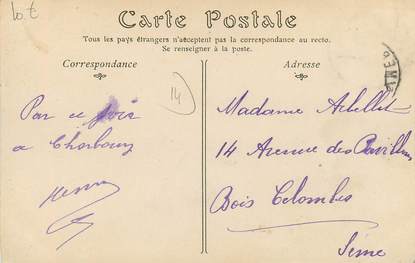 10.€
Carte Postale
Tous les pays étrangers n'acceptent pas la correspondance au recto.
Se renseigner à la poste.
Correspondance
Adresse
14
Par ce
à Cherbourg
Madame
14 Avenue des
Bois Colombes
Seine